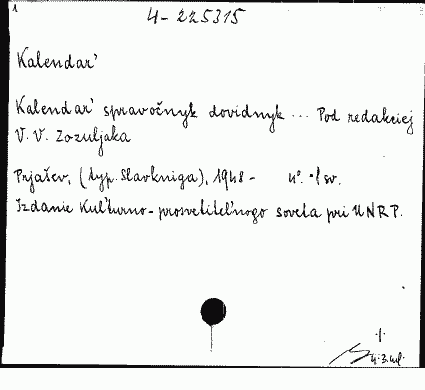 1
4-225315
Kalendar'
Kalendar' spravočnyk dovidnyk ... Pod redakciej
V. V. Zozuljaka
Prjašev, (typ. Slavkniga), 1948 - 4°. 1 sv.
Izdanie Kul'turno-prosvetitel'nogo soveta pri UNRP.